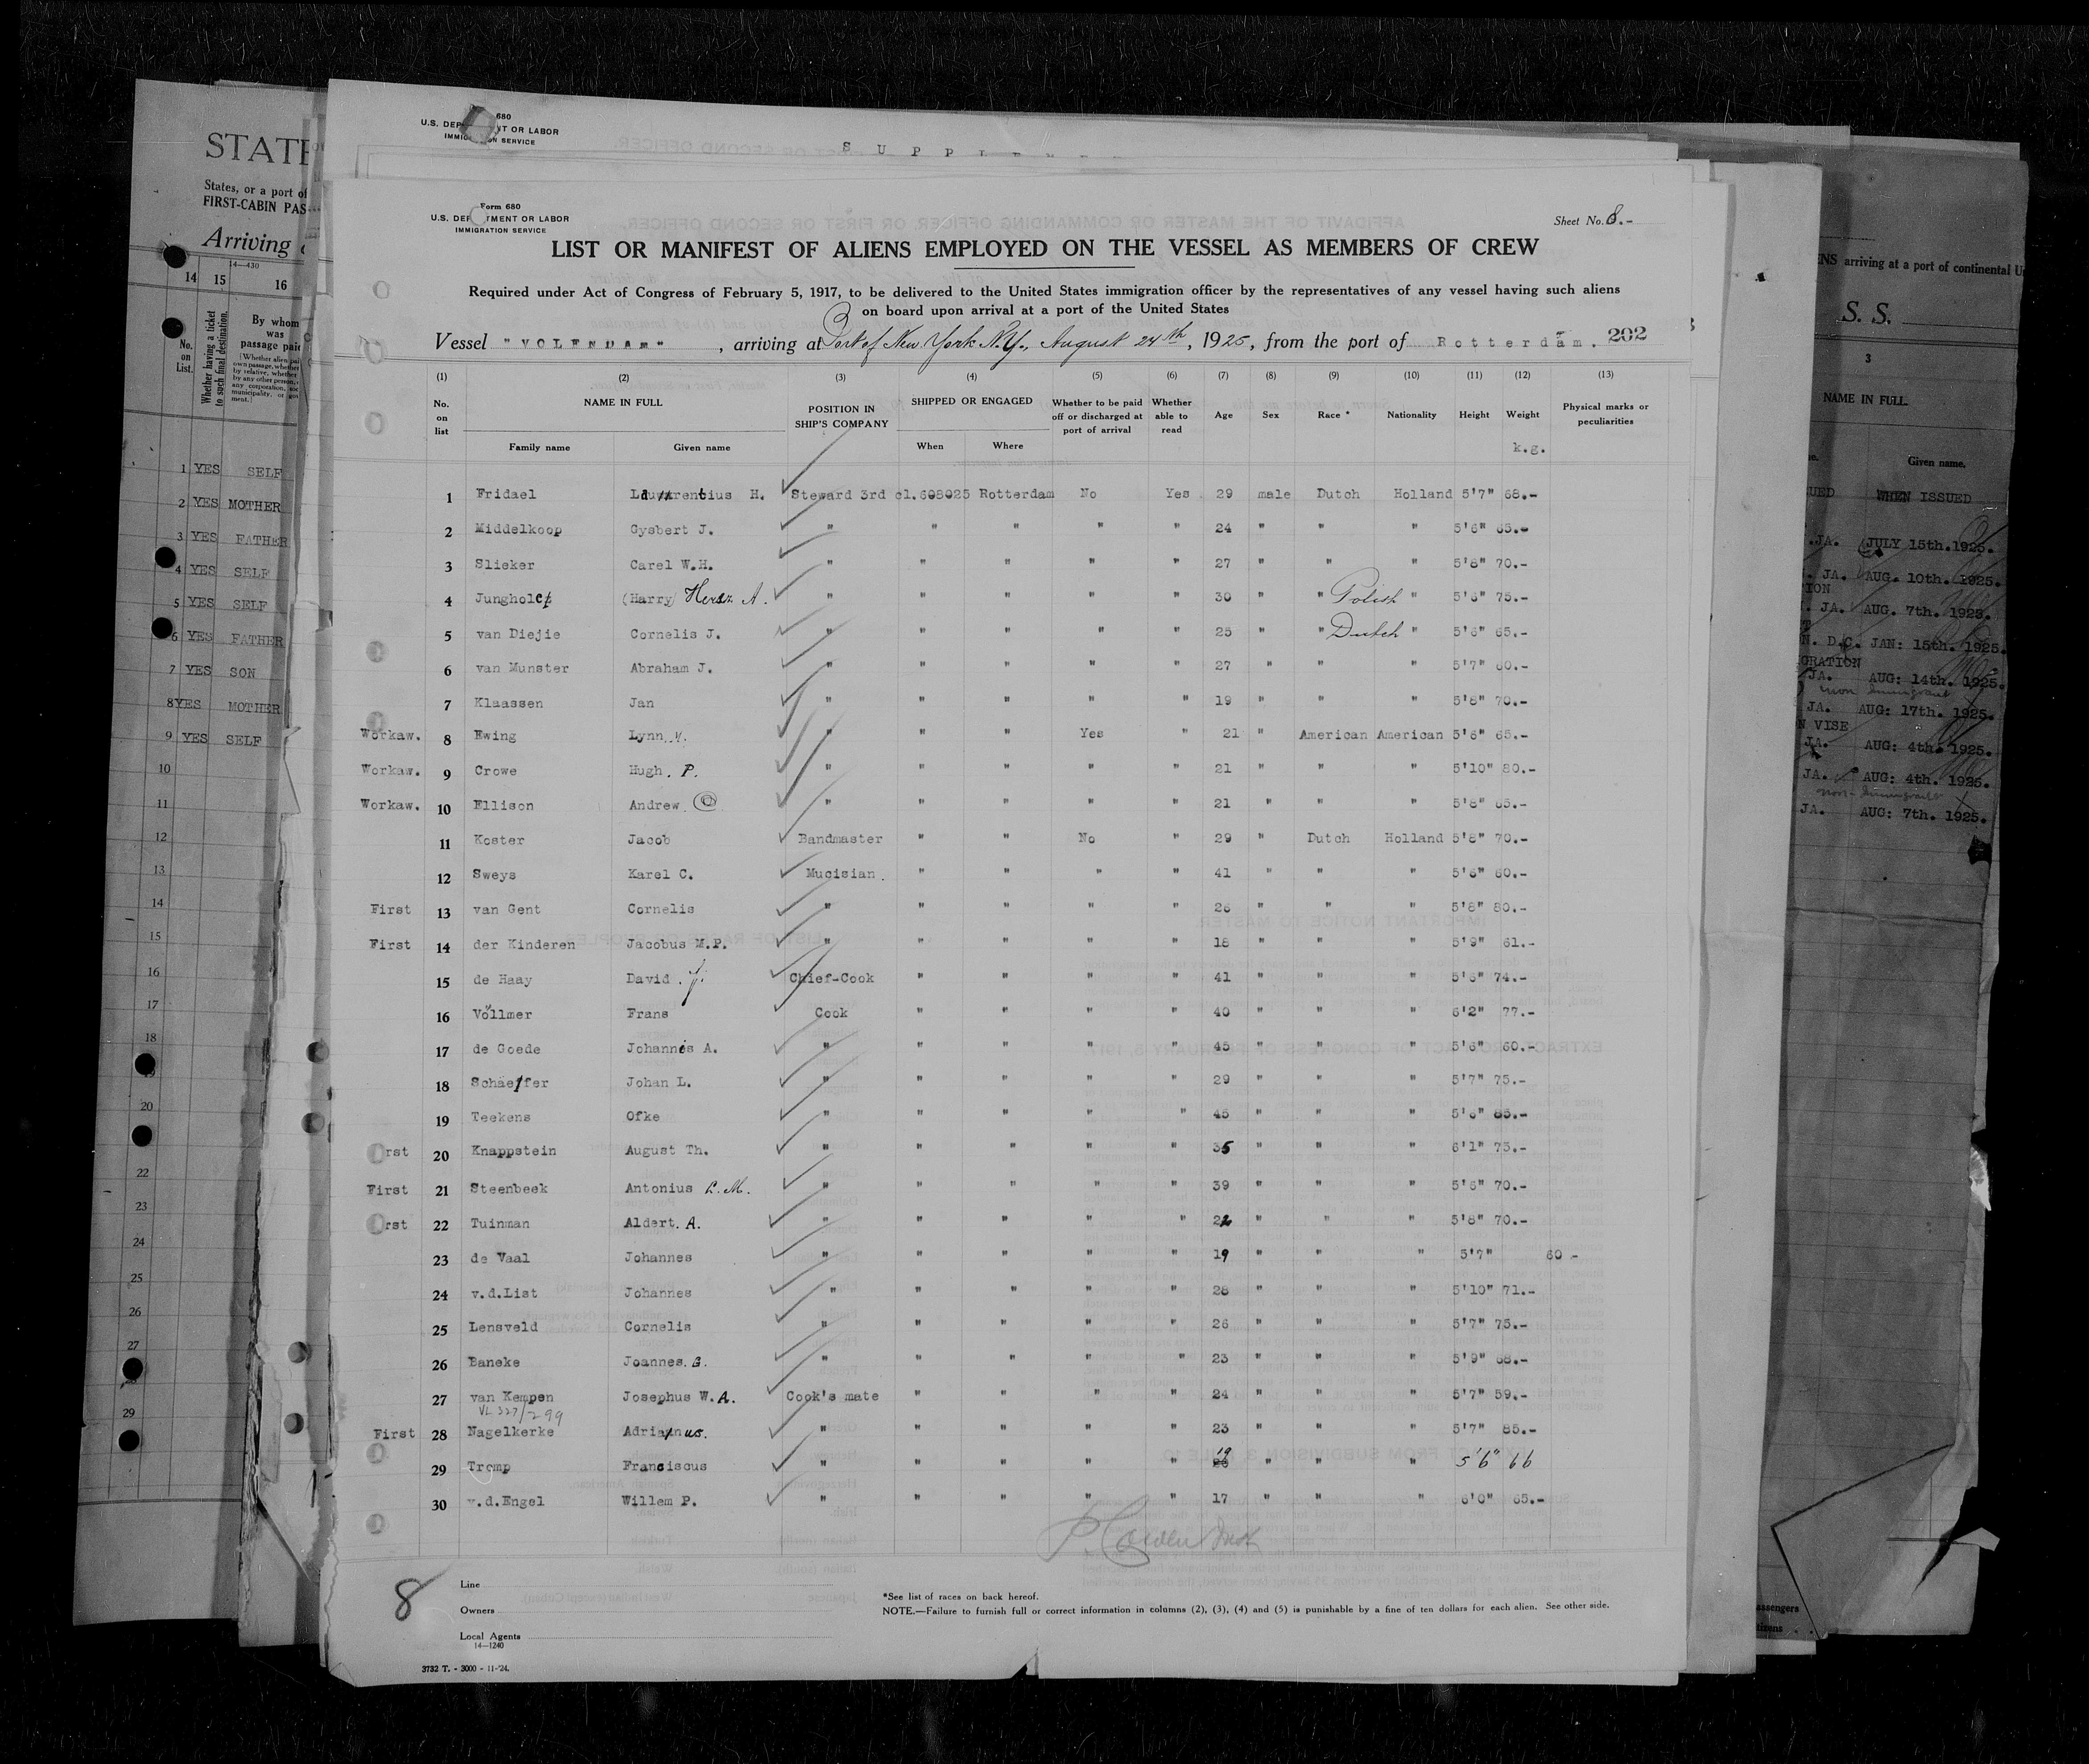 STATE
States, or a port of
FIRST-CABIN PAS
Arriving
14—430
14 15 16
No. on List.
Whether having a ticket to such final destination.
By whom was passage paid
1 YES SELF
2 YES MOTHER
3 YES FATHER
4 YES SELF
5 YES SELF
6 YES FATHER
7 YES SON
8 YES MOTHER
9 YES SELF
10
11
12
13
14
15
16
17
18
19
20
22
23
24
25
26
27
29
680
U.S. DEP NT OR LABOR
IMMIG ON SERVICE
S U P P L E M E
Form 680
U.S. DEP TMENT OR LABOR
IMMIGRATION SERVICE
Sheet No. 8.-
LIST OR MANIFEST OF ALIENS EMPLOYED ON THE VESSEL AS MEMBERS OF CREW
Required under Act of Congress of February 5, 1917, to be delivered to the United States immigration officer by the representatives of any vessel having such aliens
on board upon arrival at a port of the United States
Vessel "VOLENDAM", arriving at Port of New York N.Y., August 24th, 1925, from the port of Rotterdam. 202
(1) (2) (3) (4) (5) (6) (7) (8) (9) (10) (11) (12) (13)
No. on list
NAME IN FULL
Family name Given name
POSITION IN SHIP'S COMPANY
SHIPPED OR ENGAGED
When Where
Whether to be paid off or discharged at port of arrival
Whether able to read
Age Sex Race * Nationality Height Weight
k.g.
Physical marks or peculiarities
1 Fridael H. Steward 3rd cl. 608025 Rotterdam No Yes 29 male Dutch Holland 5'7" 68.-
2 Middelkoop Gysbert J. " " " " " 24 " " " 5'6" 65.-
3 Slieker Carel W.H. " " " " " 27 " " " 5'8" 70.-
4 (Harry) Hersz A. " " " " " 30 " " Polish " 5'6" 75.-
5 van Diejie Cornelis J. " " " " " 25 " " Dutch " 5'6" 65.-
6 van Munster Abraham J. " " " " " 27 " " " 5'7" 60.-
7 Klaassen Jan " " " " " 19 " " " 5'8" 70.-
Workaw. 8 Ewing Lynn " " " Yes " 21 " American American 5'6" 65.-
Workaw. 9 Crowe Hugh. P. " " " " " 21 " " " 5'10" 80.-
Workaw. 10 Ellison Andrew " " " " " 21 " " " 5'8" 65.-
11 Koster Jacob Bandmaster " " No " 29 " Dutch Holland 5'8" 70.-
12 Sweys Karel C. Mucisian. " " " " 41 " " " 5'6" 60.-
First 13 van Gent Cornelis " " " " " 26 " " " 5'8" 80.-
First 14 der Kinderen Jacobus M.P. " " " " " 18 " " " 5'9" 61.-
15 de Haay David. J. Chief-Cook " " " " 41 " " " 5'6" 74.-
16 Völlmer Frans Cook " " " " 40 " " " 6'2" 77.-
17 de Goede Johannes A. " " " " " 45 " " " 5'6" 60.-
18 Schaeffer Johan L. " " " " " 29 " " " 5'7" 75.-
19 Teekens Ofke " " " " " 45 " " " 5'6" 85.-
rst 20 Knappstein August Th. " " " " " 35 " " " 6'1" 75.-
First 21 Steenbeek Antonius L.M. " " " " " 39 " " " 5'6" 70.-
rst 22 Tuinman Aldert. A. " " " " " 22 " " " 5'8" 70.-
23 de Vaal Johannes " " " " " 19 " " " 5'7" 60.-
24 v.d.List Johannes " " " " " 28 " " " 5'10" 71.-
25 Lensveld Cornelis " " " " " 26 " " " 5'7" 75.-
26 Baneke Joannes. G. " " " " " 23 " " " 5'9" 68.-
27 van Kempen Josephus W.A. Cook's mate " " " " 24 " " " 5'7" 59.-
VL 327/299
First 28 Nagelkerke Adrianus. " " " " " 23 " " " 5'7" 85.-
29 Tromp Franciscus " " " " " 19 " " " 5'6" 66
30 v.d.Engel Willem P. " " " " " 17 " " " 6'0" 65.-
8
Line
Owners
Local Agents
14—1240
*See list of races on back hereof.
NOTE.—Failure to furnish full or correct information in columns (2), (3), (4) and (5) is punishable by a fine of ten dollars for each alien. See other side.
3732 T. - 3000 - 11-'24.
ENS arriving at a port of continental
S. S.
3
NAME IN FULL.
Given name.
UED WHEN ISSUED
JA. JULY 15th. 1925.
JA. AUG. 10th. 1925.
ION
JA. AUG. 7th. 1925.
N. D.C. JAN: 15th. 1925.
GRATION
JA. AUG: 14th. 1925.
non immigrant
JA. AUG: 17th. 1925.
N VISE
JA. AUG: 4th. 1925.
JA. AUG: 4th. 1925.
non-immigrant
JA. AUG: 7th. 1925.
assengers
tizens